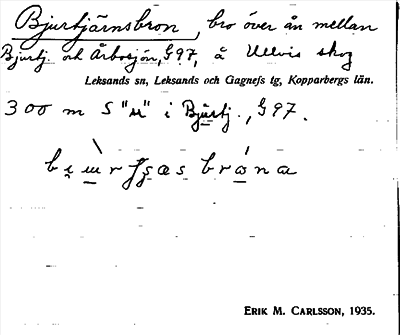 Bjurtjärnsbron, bro över ån mellan
Bjurtj. och Årbosjön, G97, å Ullvis skog
Leksands sn, Leksands och Gagnefs tg, Kopparbergs län.
300 m S "u" i Bjurtj., G97.
ERIK M. CARLSSON, 1935.